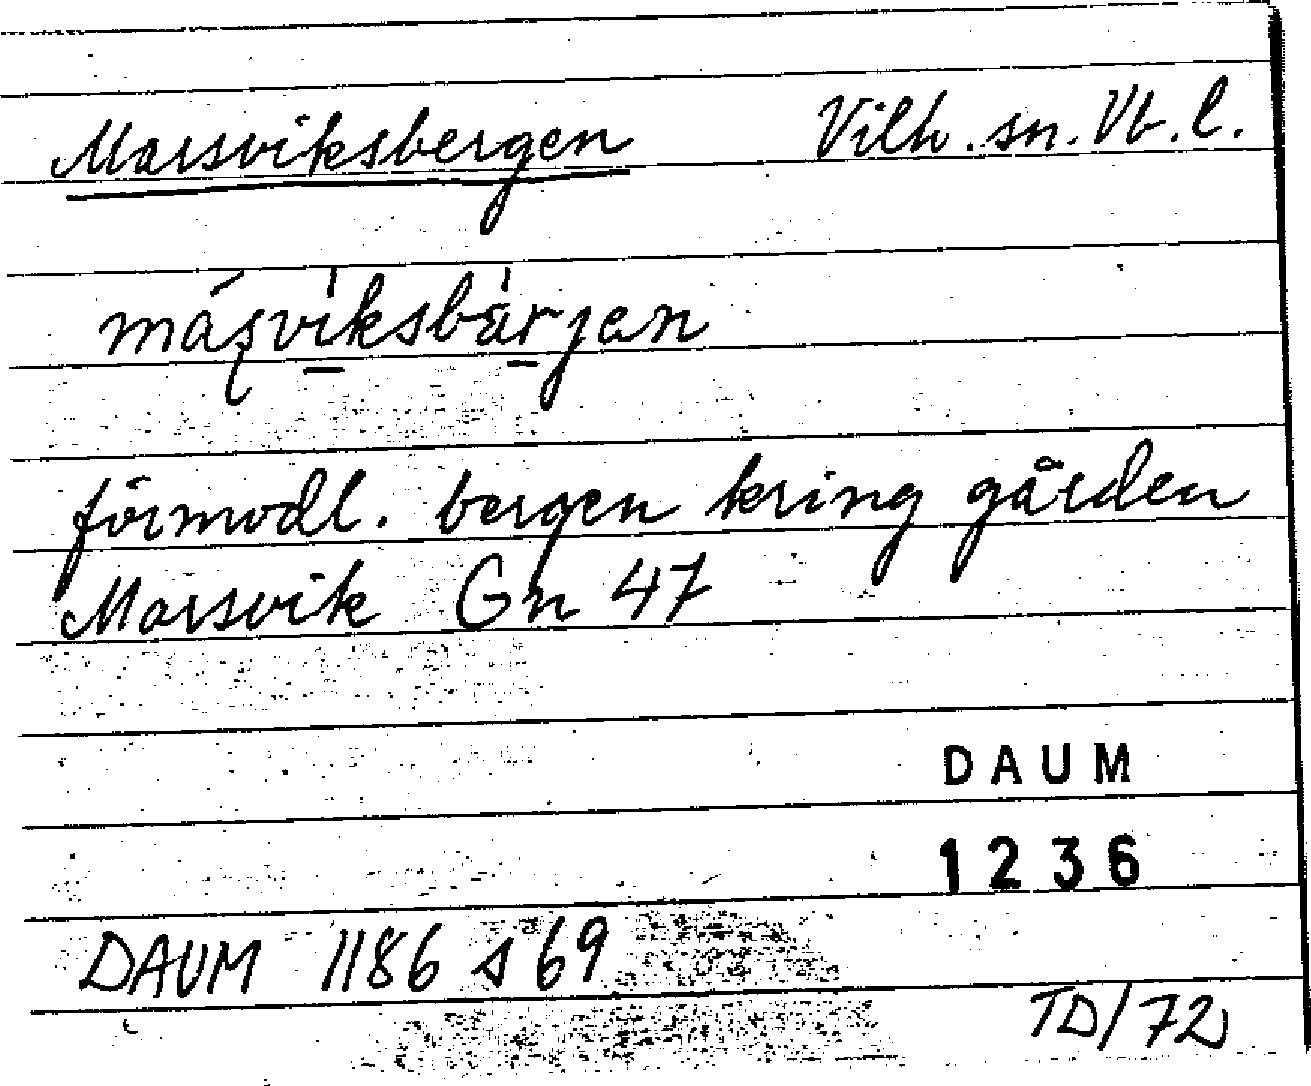 Marsviksbergen Vilh. sn. Vb. l.
máʂvìksbä̀rjen
förmodl. bergen kring gården
Marsvik Gn 47
DAUM
1236
DAUM 1186 s 69
TD/72